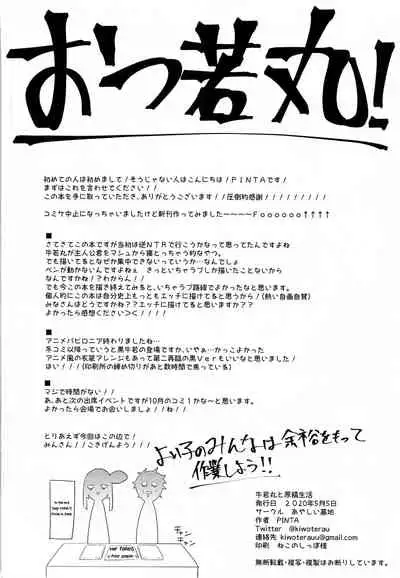 おつ若丸!
初めての人は初めまして!そうじゃない人はこんにちは!PINTAです!
まずはこれを言わせてください!!
この本を手に取っていただき、ありがとうございます!!圧倒的感謝!!!!!!!!!
コミケ中止になっちゃいましたけど新刊作ってみましたーーーーFoooooo↑↑↑↑
■
さてさてこの本ですが当初は逆NTRで行こうかなって思ってたんですよね
牛若丸が主人公君をマシュから寝とっちゃう的なやつ。
でも描いてるとなぜか集中できないっていうか…なんでしょ
ペンが動かないんですよねぇ きっといちゃラブしか描いたことないから
なんですかね!?わからん!!
でも今この本を描き終えてみると、いちゃラブ路線でよかったなと思います。
個人的にこの本は自分史上もっともエッチに描けてると思うから!(熱い自画自賛)
みなさんはどうですかね??エッチに描けてると思いますか??
よかったら感想ください>○<
■
アニメバビロニア終わりましたね。
冬コミ以降でいうと黒牛若の登場ですか、いやぁ…かっこよかった
アニメ風の衣装アレンジもあって第二再臨の黒Verもいいなと思いました!
はい!!!(印刷所の締め切りがあと数時間で焦っている)
■
マジで時間がない!!
あ、あと次の出席イベントですが10月のコミ1かな~と思います。
よかったら会場でお会いしましょ!!ね!!
とりあえず今回はこの辺で!
みんさん!!ごきげんよう!!!
よい子のみんなは余裕をもって
作業しよう!!
チャン
チャン
牛若丸と原稿生活
発行日 2020年5月5日
サークル あやしい墓地
作者 PINTA
Twitter @kiwoterau
連絡先 kiwoterauu@gmail.com
印刷 ねこのしっぽ様
無断転載・複写・複製はお断りしています。